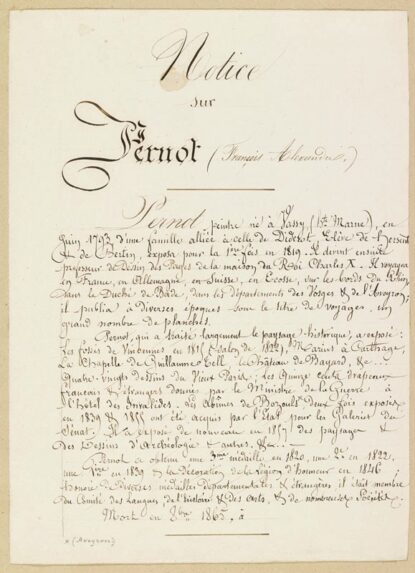 Notice
sur
Pernot (François Alexandre.)
Pernot peintre né à Vassy (Hte Marne), en
Juin 1793 d'une famille alliée à celle de Diderot. Elève de
& de Bertin, exposa pour la 1ère fois en 1819. Il devint ensuite
professeur de Dessin des Pages de la maison du Roi Charles X. Il voyagea
en France, en Allemagne, en Suisse, en Ecosse, sur les bords du Rhin,
dans le Duché de Bade, dans les départements des Vosges & de l'Aveyron;
il publia à diverses époques sous le titre de voyages, un
grand nombre de planches.
Pernot, qui a traité largement le paysage historique, a exposé:
Les fossés de Vincennes en (Salon de 1822), Marius à Carthage,
La Chapelle de Guillaume Tell, le Château de Bayard, &
quatre-vingts dessins du Vieux Paris; les Quinze cents drapeaux
français & étrangers donnés par le Ministre de la Guerre à
l'hôtel des Invalides; les Abîmes de x deux fois exposés
en 1839 & 1855 ont été acquis par l'État pour les Galeries du
Sénat. Il a exposé de nouveau en 1857 des paysages &
des Dessins d'Archéologie & autres. &c..
Pernot a obtenu une 3me médaille en 1820, une 2e en 1822,
une 1ère en 1839 & la Décoration de la légion d'honneur en 1846
honoré de diverses médailles départementales & étrangères il était membre
du Comité des Langues, de l'histoire & des arts, & de nombreuses Sociétés.
Mort en 8bre 1865, à
x (Aveyron)